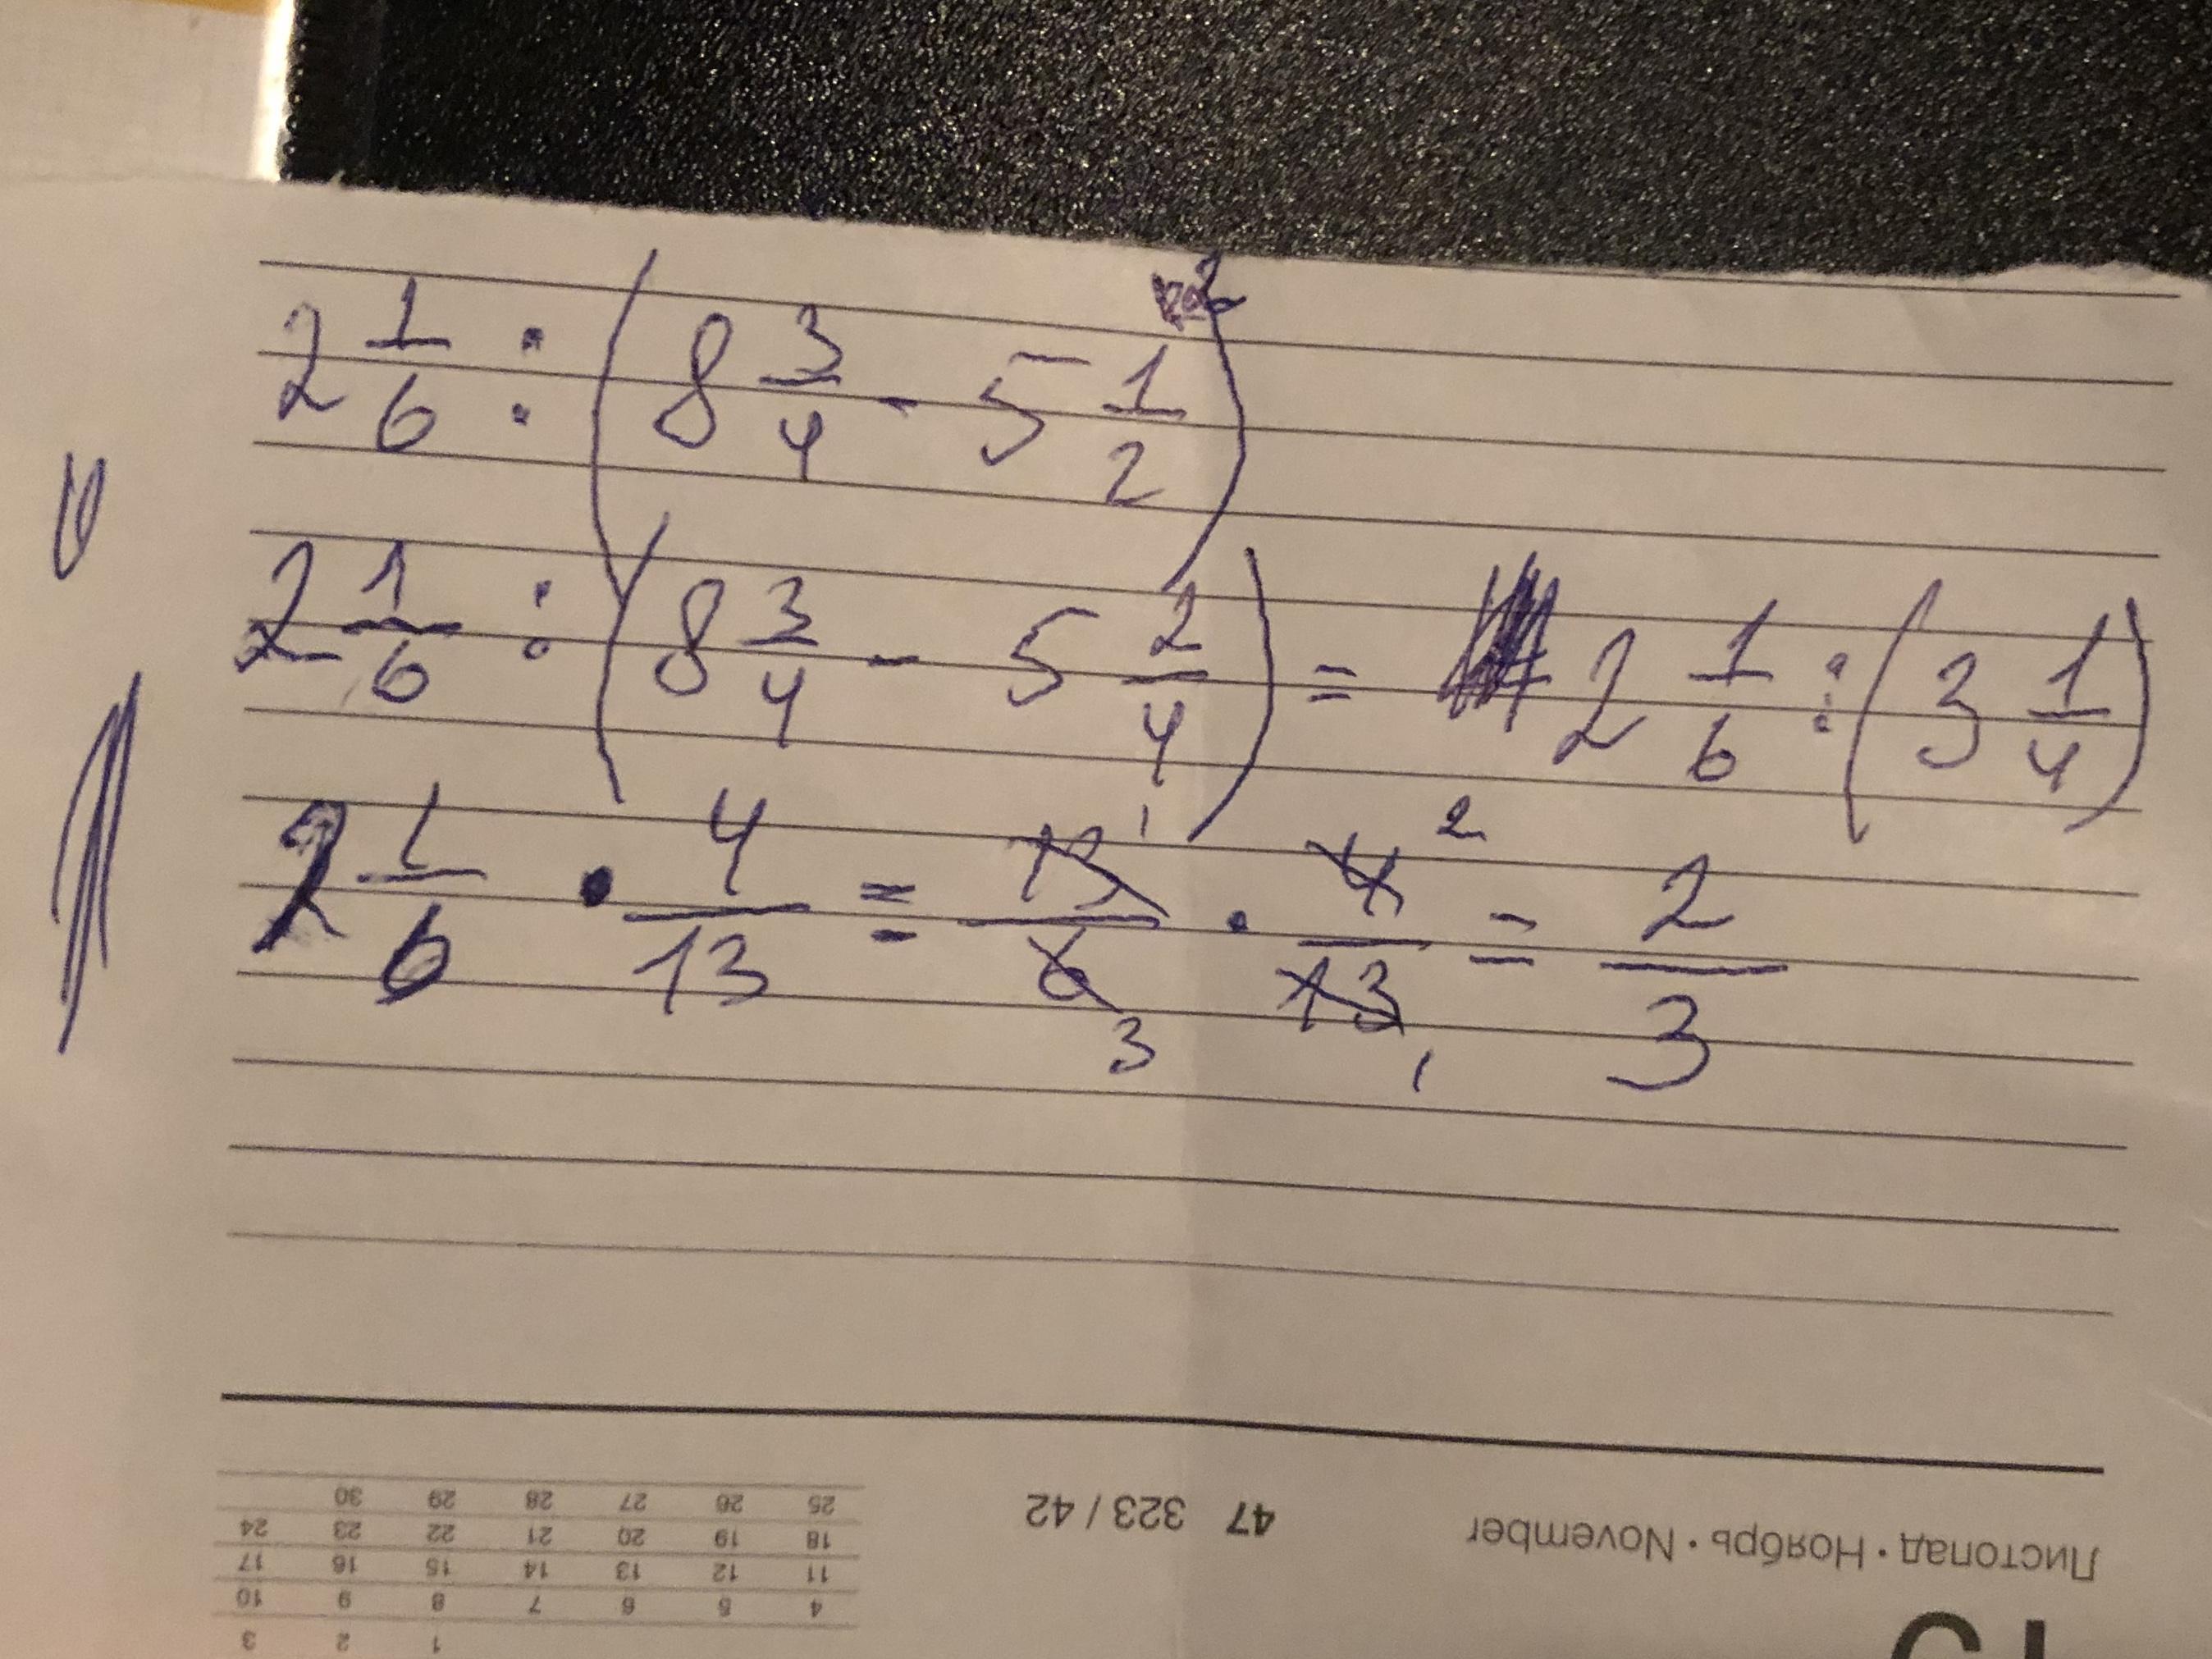 2 1/6 : (8 3/4 - 5 1/2)
2 1/6 : (8 3/4 - 5 2/4) = 2 1/6 : (3 1/4)
2 1/6 · 4/13 = 13/6 · 4/13 = 2/3
1 2
3 1
Листопад · Ноябрь · November 47 323 / 42
1 2 3
4 5 6 7 8 9 10
11 12 13 14 15 16 17
18 19 20 21 22 23 24
25 26 27 28 29 30